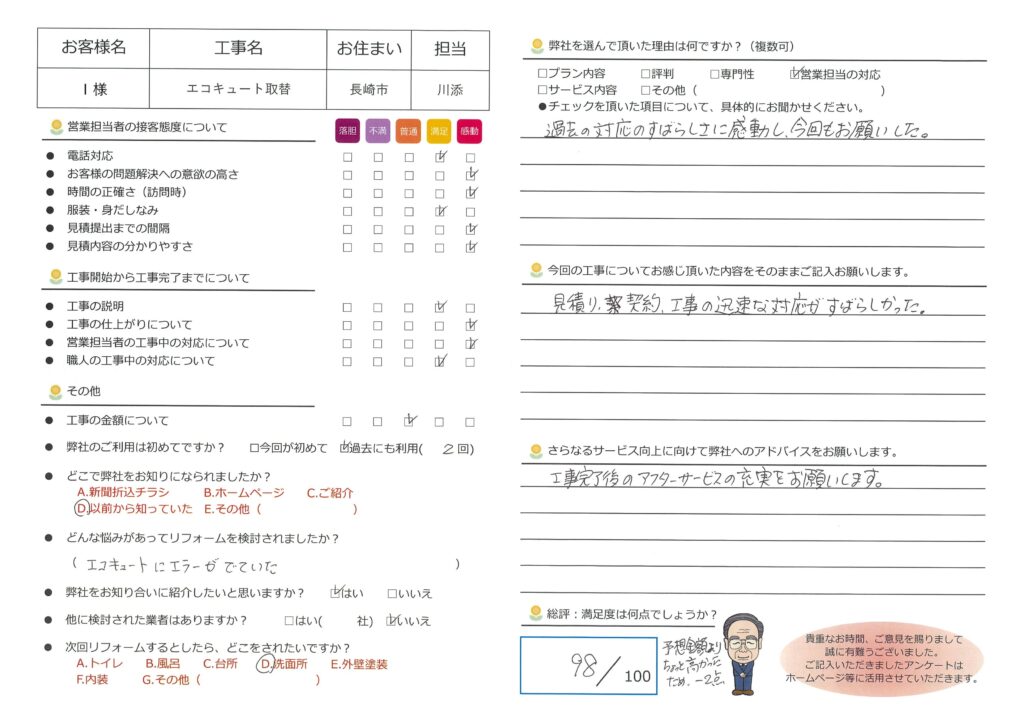 お客様名 工事名 お住まい 担当
I 様 エコキュート取替 長崎市 川添
営業担当者の接客態度について 落胆 不満 普通 満足 感動
● 電話対応 □ □ □ ☑ □
● お客様の問題解決への意欲の高さ □ □ □ □ ☑
● 時間の正確さ（訪問時） □ □ □ □ ☑
● 服装・身だしなみ □ □ □ ☑ □
● 見積提出までの間隔 □ □ □ □ ☑
● 見積内容の分かりやすさ □ □ □ □ ☑
工事開始から工事完了までについて
● 工事の説明 □ □ □ ☑ □
● 工事の仕上がりについて □ □ □ □ ☑
● 営業担当者の工事中の対応について □ □ □ □ ☑
● 職人の工事中の対応について □ □ □ ☑ □
その他
● 工事の金額について □ □ ☑ □ □
● 弊社のご利用は初めてですか？ □今回が初めて ☑過去にも利用( 2 回)
● どこで弊社をお知りになられましたか？
A.新聞折込チラシ B.ホームページ C.ご紹介
D.以前から知っていた E.その他（ ）
● どんな悩みがあってリフォームを検討されましたか？
( エコキュートにエラーがでていた )
● 弊社をお知り合いに紹介したいと思いますか？ ☑はい □いいえ
● 他に検討された業者はありますか？ □はい( 社) ☑いいえ
● 次回リフォームするとしたら、どこをされたいですか？
A.トイレ B.風呂 C.台所 D.洗面所 E.外壁塗装
F.内装 G.その他（ ）
弊社を選んで頂いた理由は何ですか？（複数可）
□プラン内容 □評判 □専門性 ☑営業担当の対応
□サービス内容 □その他（ ）
●チェックを頂いた項目について、具体的にお聞かせください。
過去の対応のすばらしさに感動し、今回もお願いした。
今回の工事についてお感じ頂いた内容をそのままご記入お願いします。
見積り、契約、工事の迅速な対応がすばらしかった。
さらなるサービス向上に向けて弊社へのアドバイスをお願いします。
工事完了後のアフターサービスの充実をお願いします。
総評：満足度は何点でしょうか？
98/100
予想金額より
ちょっと高かった
ため、-2点
貴重なお時間、ご意見を賜りまして
誠に有難うございました。
ご記入いただきましたアンケートは
ホームページ等に活用させていただきます。